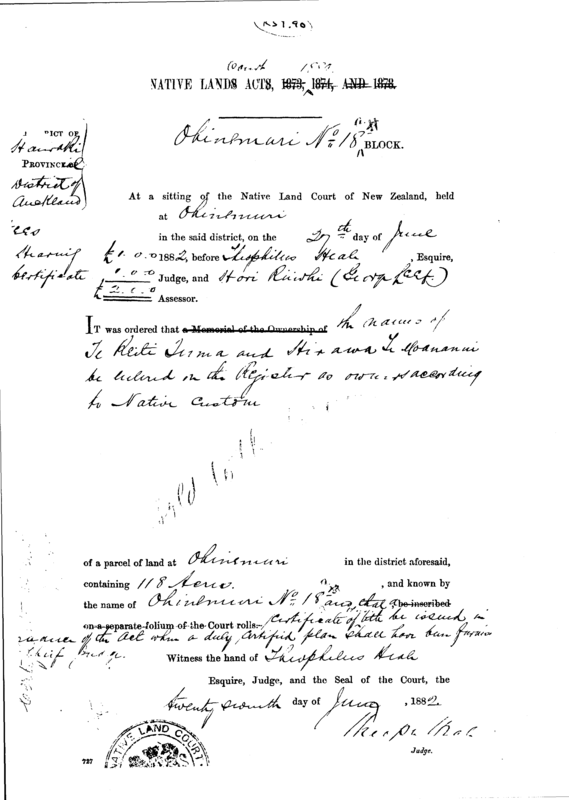 NATIVE LANDS ACTS, 1873, 1874, AND 1878.
Court
Ohinemuri No 18
BLOCK.
Hauraki
PROVINCIAL
District of
Auckland
At a sitting of the Native Land Court of New Zealand, held
at Ohinemuri
in the said district, on the 27th day of June
Hearing £1.0.0 1882, before Theophilus Heale, Esquire,
Certificate 1.0.0 Judge, and Hori
£2.0.0 Assessor.
IT was ordered that a Memorial of the Ownership of the names of
Te Reiti and Hirawa Te Moananui
be entered on the Register as owners according
to Native Custom
of a parcel of land at Ohinemuri in the district aforesaid,
containing 118 Acres., and known by
the name of Ohinemuri No 18 and that be inscribed
on a separate folium of the Court rolls. Certificate of title be issued in
of the Act when a duly certified plan shall have been
Chief Judge.
Witness the hand of Theophilus Heale
Esquire, Judge, and the Seal of the Court, the
twenty seventh day of June, 1882
Judge.
NATIVE LAND COURT
727